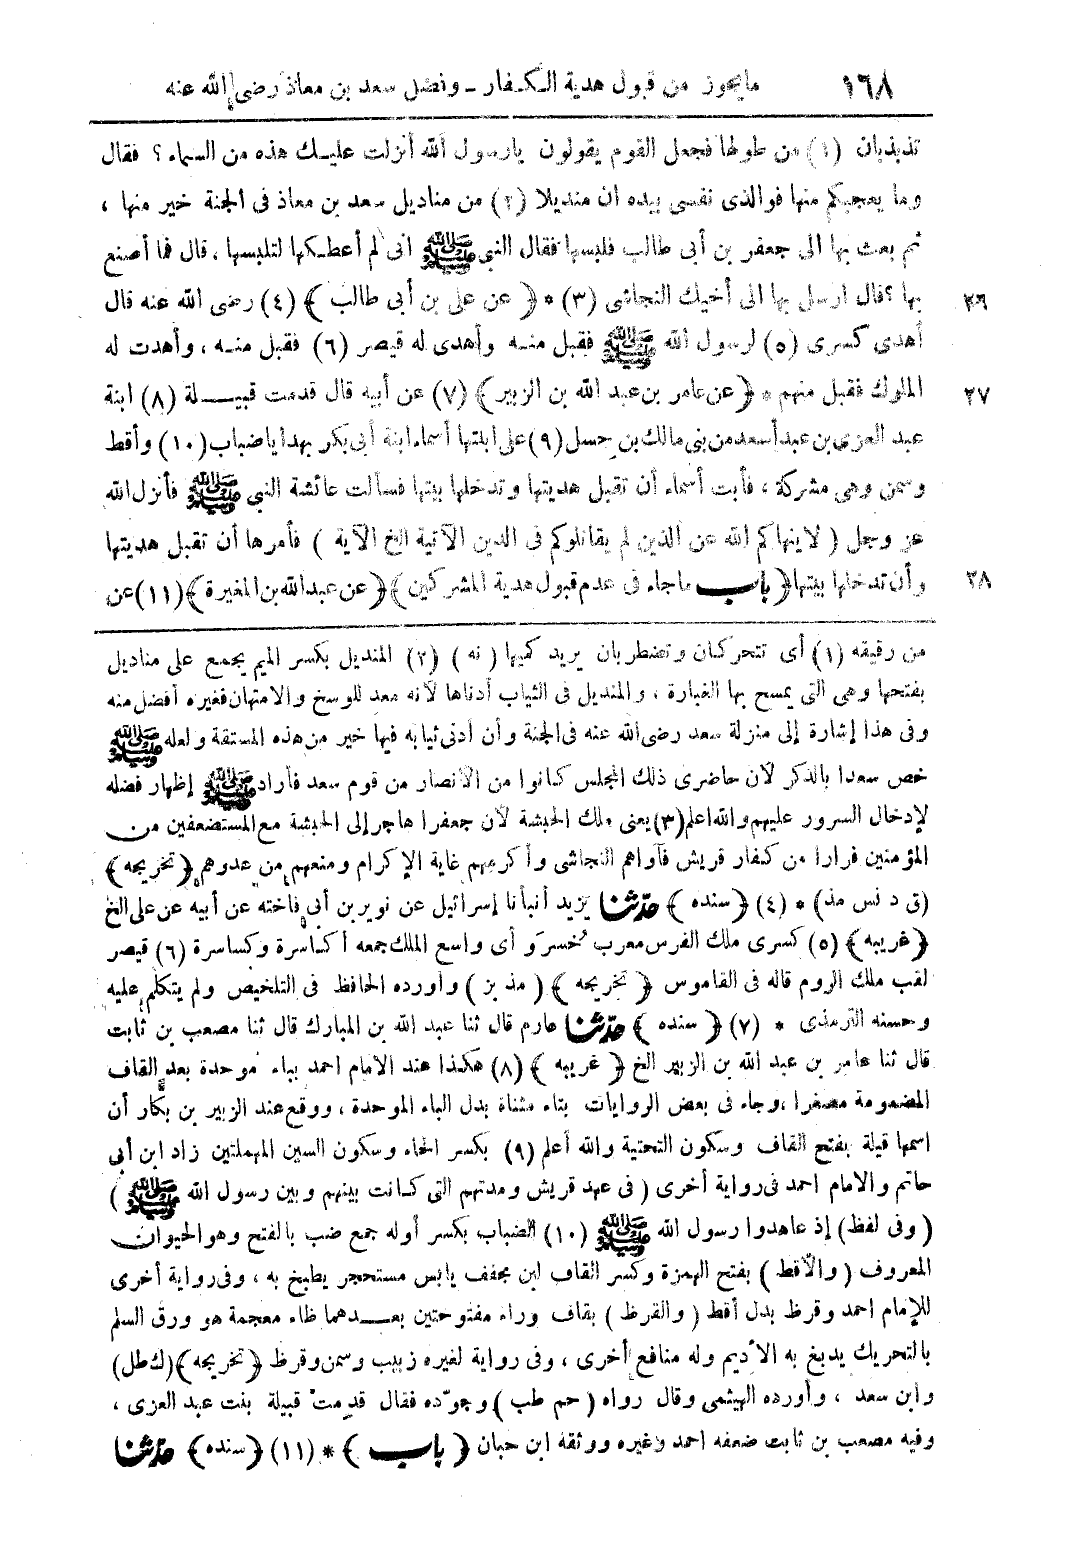 ١٦٨ مايجوز من قبول هدية الكفار ـ وفضل سعد بن معاذ رضى الله عنه
تذبذبان (١) من طولها فجعل القوم يقولون يارسول الله أنزلت عليك هذه من السماء ؟ فقال
وما يعجبكم منها فوالذى نفسى بيده ان منديلا (٢) من مناديل سعد بن معاذ فى الجنة خير منها ،
ثم بعث بها الى جعفر بن أبى طالب فلبسها فقال النبى ﷺ انى لم أعطكها لتلبسها ، قال فما أصنع
بها ؟ قال ارسل بها الى أخيك النجاشى (٣) * ﴿ عن على بن أبى طالب ﴾ (٤) رضى الله عنه قال ٢٦
أهدى كسرى (٥) لرسول الله ﷺ فقبل منه وأهدى له قيصر (٦) فقبل منه ، وأهدت له
الملوك فقبل منهم * ﴿ عن عامر بن عبد الله بن الزبير ﴾ (٧) عن أبيه قال قدمت قبيلة (٨) ابنة ٢٧
عبد العزى بن عبد أسعد من بنى مالك بن حسل (٩) على ابنتها أسماء ابنة أبى بكر بهدايا ضباب (١٠) وأقط
وسمن وهى مشركة ، فأبت أسماء أن تقبل هديتها وتدخلها بيتها فسألت عائشة النبى ﷺ فأنزل الله
عز وجل ( لاينهاكم الله عن الذين لم يقاتلوكم فى الدين الآتية الخ الآية ) فأمرها أن تقبل هديتها
وأن تدخلها بيتها ﴿ باب ماجاء فى عدم قبول هدية المشركين ﴾ ﴿ عن عبد الله بن المغيرة ﴾ (١١) عن ٢٨
من رقيقه (١) أى تتحركان وتضطربان يريد كميها ( نه ) (٢) المنديل بكسر الميم يجمع على مناديل
بفتحها وهى التى يمسح بها الغبارة ، والمنديل فى الثياب أدناها لأنه معد للوسخ والامتهان فغيره أفضل منه
وفى هذا إشارة إلى منزلة سعد رضى الله عنه فى الجنة وأن أدنى ثيابه فيها خير من هذه المستقة ولعله ﷺ
خص سعدا بالذكر لأن حاضرى ذلك المجلس كانوا من الأنصار من قوم سعد فأراد ﷺ إظهار فضله
لإدخال السرور عليهم والله اعلم (٣) يعنى ملك الحبشة لأن جعفرا هاجر إلى الحبشة مع المستضعفين من
المؤمنين فرارا من كفار قريش فآواهم النجاشى وأكرمهم غاية الإكرام ومنعهم من عدوهم ﴿ تخريجه ﴾
(ق د نس مذ) * (٤) ﴿ سنده ﴾ حدثنا يزيد أنبأنا إسرائيل عن نوير بن أبى فاخته عن أبيه عن على الخ
﴿ غريبه ﴾ (٥) كسرى ملك الفرس معرب خسرو أى واسع الملك جمعه أكاسرة وكساسرة (٦) قيصر
لقب ملك الروم قاله فى القاموس ﴿ تخريجه ﴾ ( مذ بز ) وأورده الحافظ فى التلخيص ولم يتكلم عليه
وحسنه الترمذى * (٧) ﴿ سنده ﴾ حدثنا عارم قال ثنا عبد الله بن المبارك قال ثنا مصعب بن ثابت
قال ثنا عامر بن عبد الله بن الزبير الخ ﴿ غريبه ﴾ (٨) هكذا عند الامام احمد بباء موحدة بعد القاف
المضمومة مصغرا ، وجاء فى بعض الروايات بتاء مثناة بدل الباء الموحدة ، ووقع عند الزبير بن بكار أن
اسمها قيلة بفتح القاف وسكون التحتية والله أعلم (٩) بكسر الحاء وسكون السين المهملتين زاد ابن أبى
حاتم والامام احمد فى رواية أخرى ( فى عهد قريش ومدتهم التى كانت بينهم وبين رسول الله ﷺ )
( وفى لفظ ) إذ عاهدوا رسول الله ﷺ (١٠) الضباب بكسر أوله جمع ضب بالفتح وهو الحيوان
المعروف ( والأقط ) بفتح الهمزة وكسر القاف لبن مجفف يابس مستحجر يطبخ به ، وفى رواية أخرى
للإمام احمد وقرظ بدل أقط ( والقرظ ) بقاف وراء مفتوحتين بعدهما ظاء معجمة هو ورق السلم
بالتحريك يدبغ به الأديم وله منافع أخرى ، وفى رواية لغيره زبيب وسمن وقرظ ﴿ تخريجه ﴾ (ك طل)
وابن سعد ، وأورده الهيثمى وقال رواه ( حم طب ) وجوّده فقال قدمت قبيلة بنت عبد العزى ،
وفيه مصعب بن ثابت ضعفه احمد وغيره ووثقه ابن حبان ﴿ باب ﴾ * (١١) ﴿ سنده ﴾ حدثنا